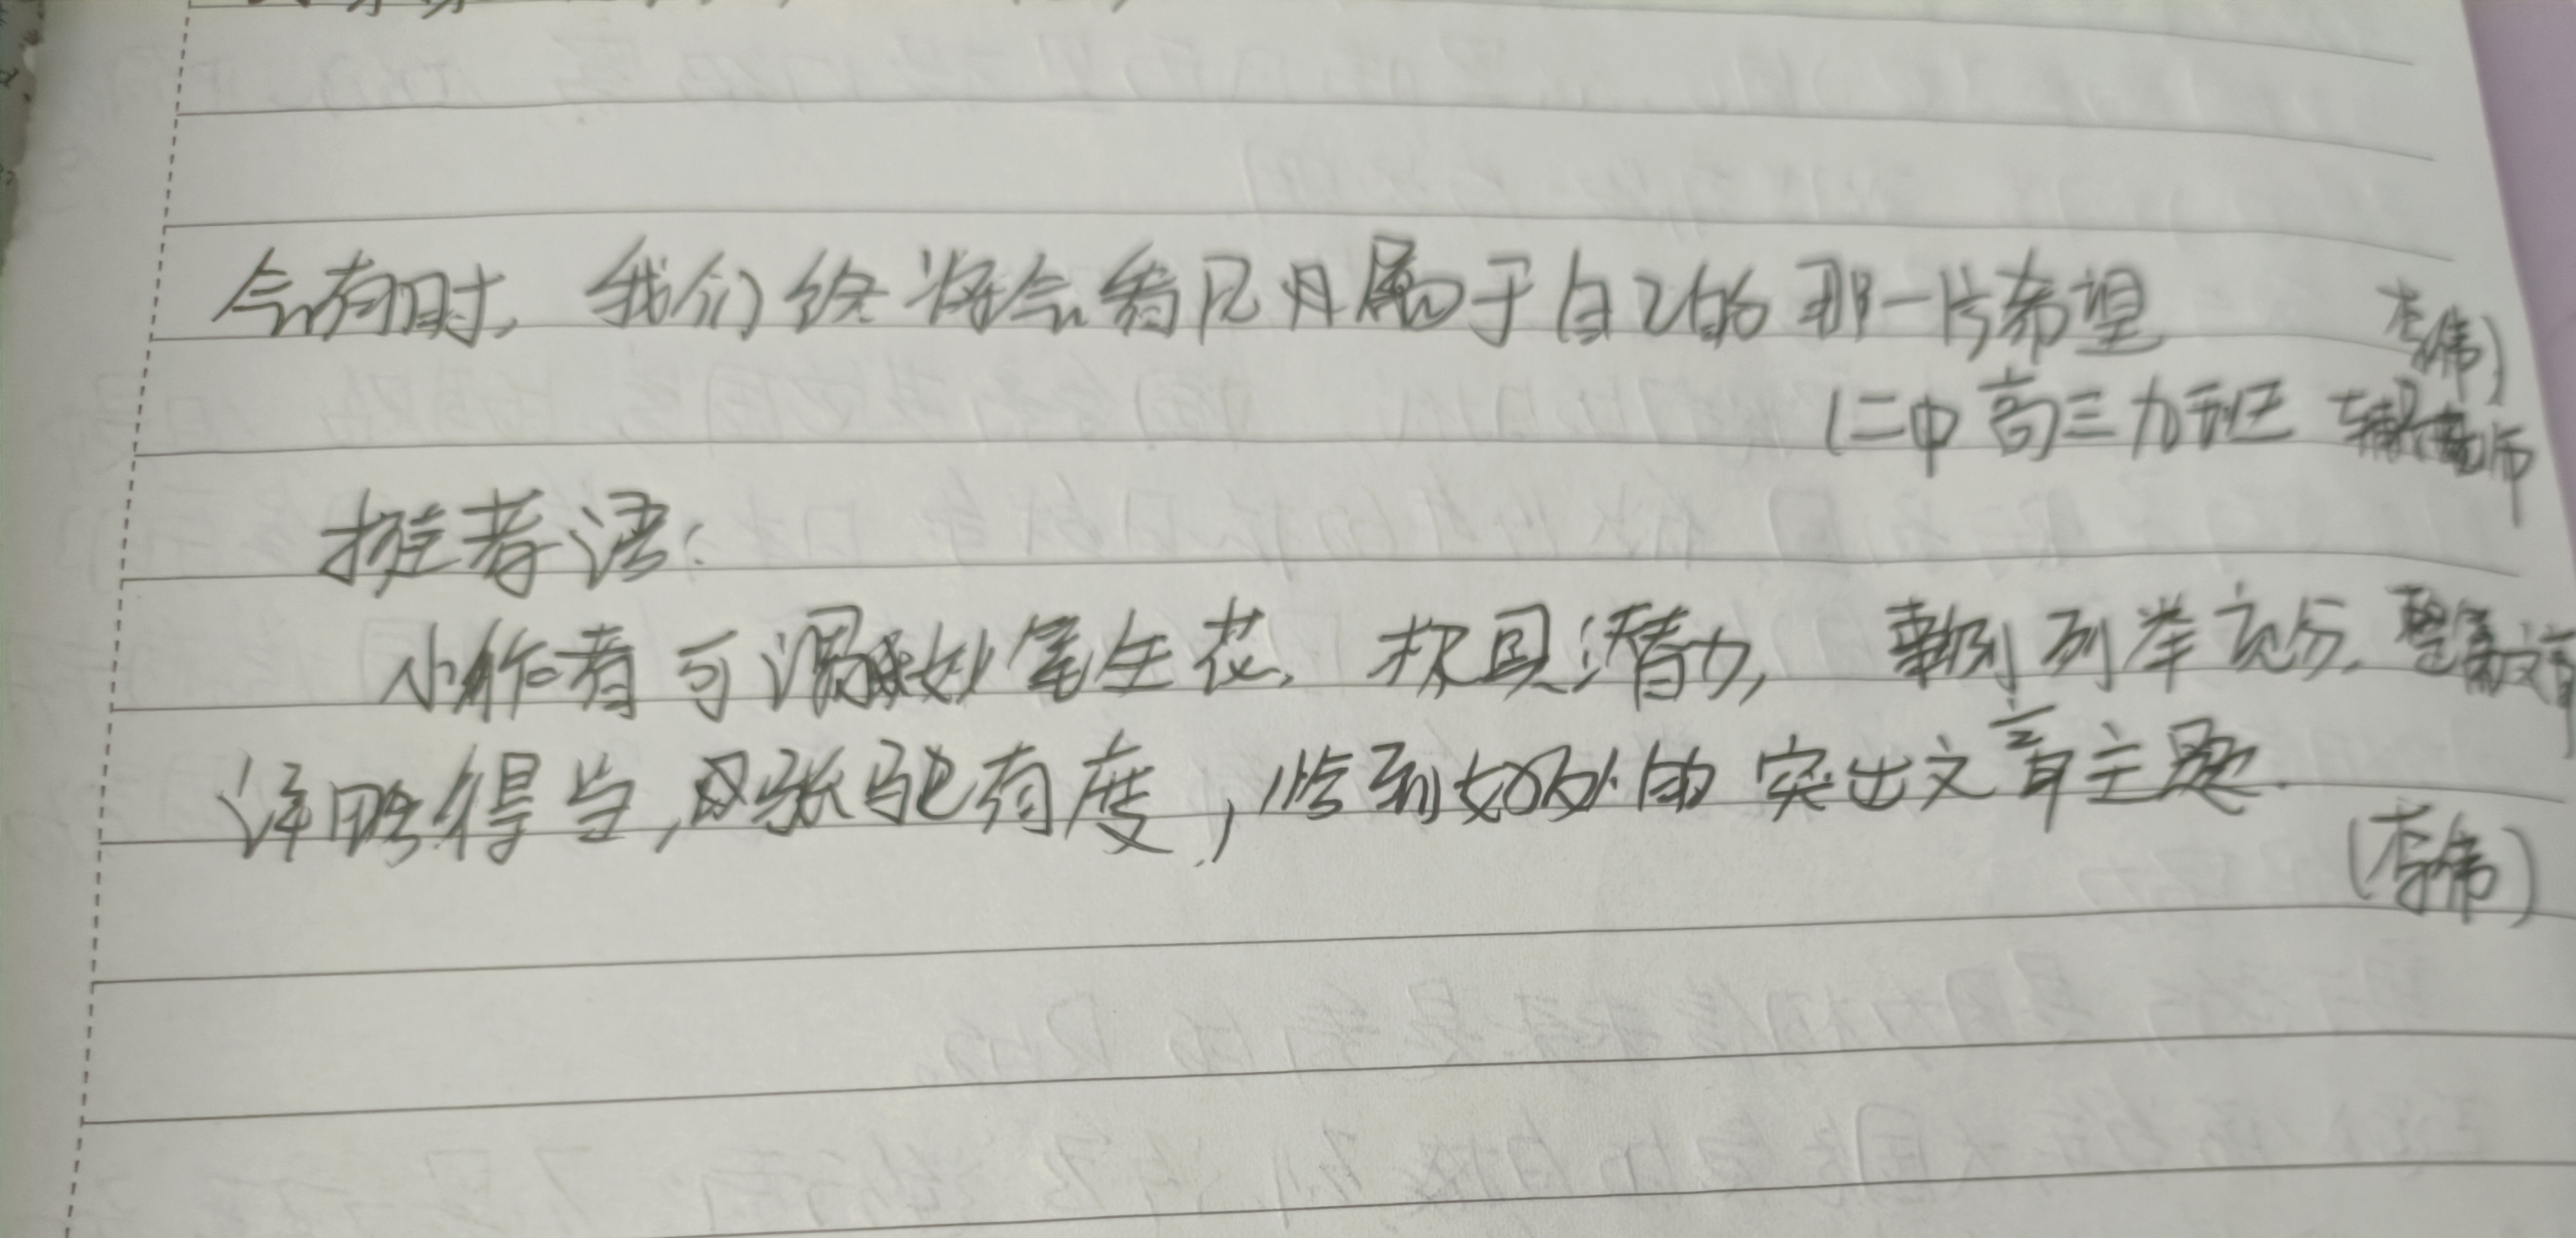 会有时，我们终将会看见月属于自己的那一片希望
(二中高三九班 辅导老师
李伟)
推荐语：
小作者可谓妙笔生花，极具潜力，事例列举充分，整篇文章
详略得当，张弛有度，恰到好处的突出文章主题.
(李伟)